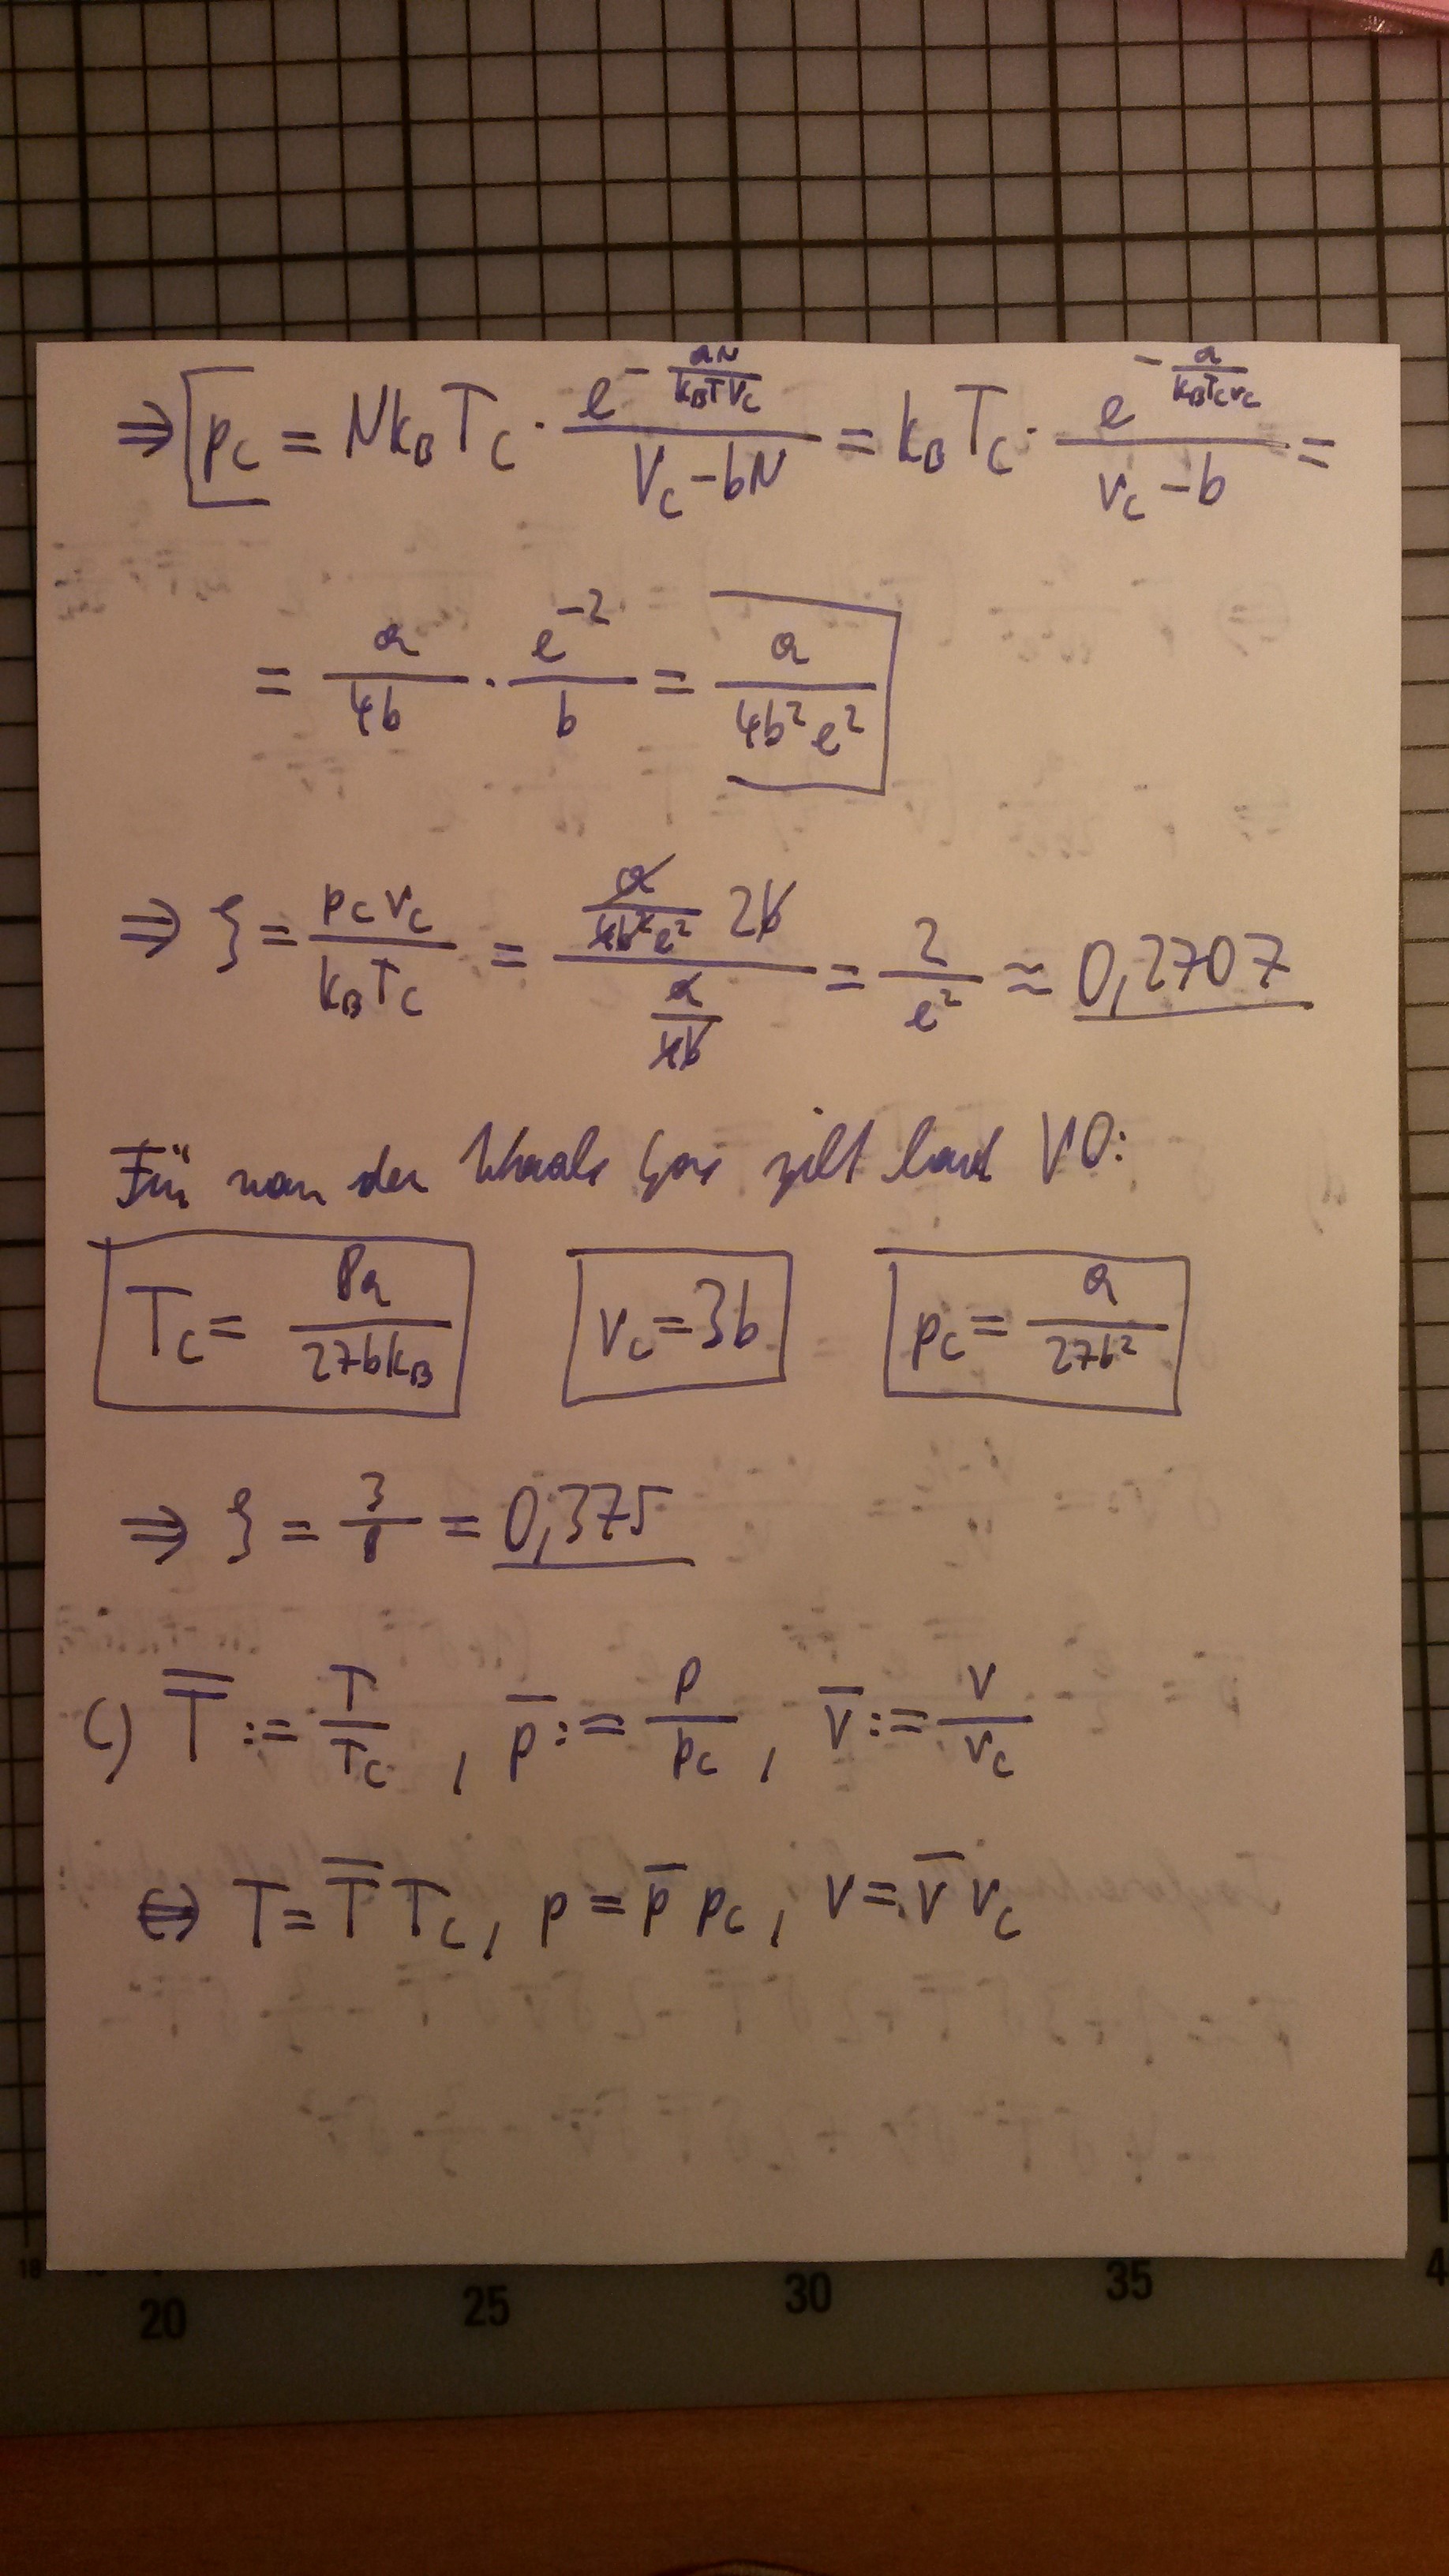 ⇒ [p_C = Nk_B T_C · e^(-aN/(k_B T V_C)) / (V_C - bN) = k_B T_C · e^(-a/(k_B T_C v_C)) / (v_C - b) =
= a/(4b) · e^(-2)/b = a/(4b²e²)]
⇒ ξ = p_C v_C / (k_B T_C) = (a/(4b²e²) 2b) / (a/(4b)) = 2/e² ≈ 0,2707
Für van der Waals Gas gilt laut VO:
T_C = 8a/(27bk_B) v_C = 3b p_C = a/(27b²)
⇒ ξ = 3/8 = 0,375
c) T̄ := T/T_C , p̄ := p/p_C , v̄ := v/v_C
⇔ T = T̄ T_C, p = p̄ p_C, v = v̄ v_C
20 25 30 35